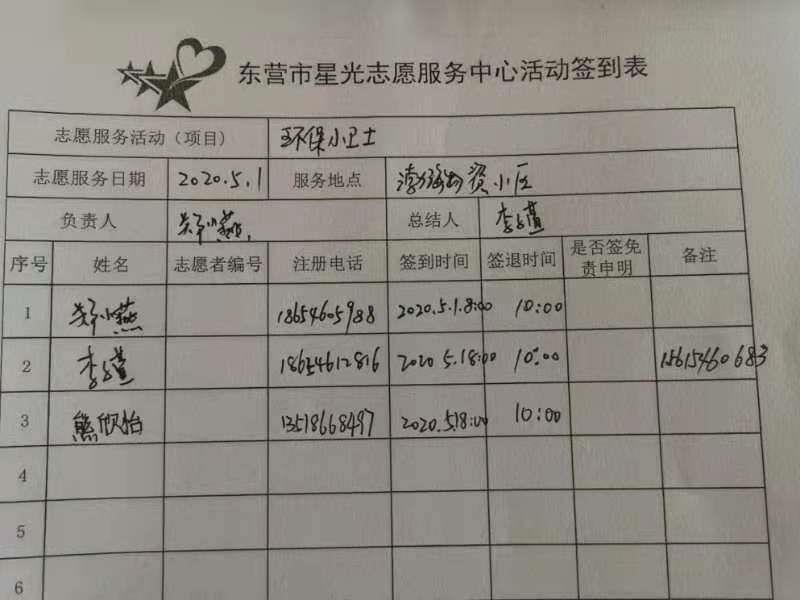 东营市星光志愿服务中心活动签到表
志愿服务活动（项目） 环保小卫士
志愿服务日期 2020.5.1 服务地点 渤海物资小区
负责人 郑小燕 总结人 李
序号 姓名 志愿者编号 注册电话 签到时间 签退时间 是否签免责申明 备注
1 郑小燕 18654605988 2020.5.1.8:00 10:00
2 李 18654612816 2020 5.18:00 10:00 15615460683
3 熊欣怡 13518668497 2020.5.18:00 10:00
4
5
6